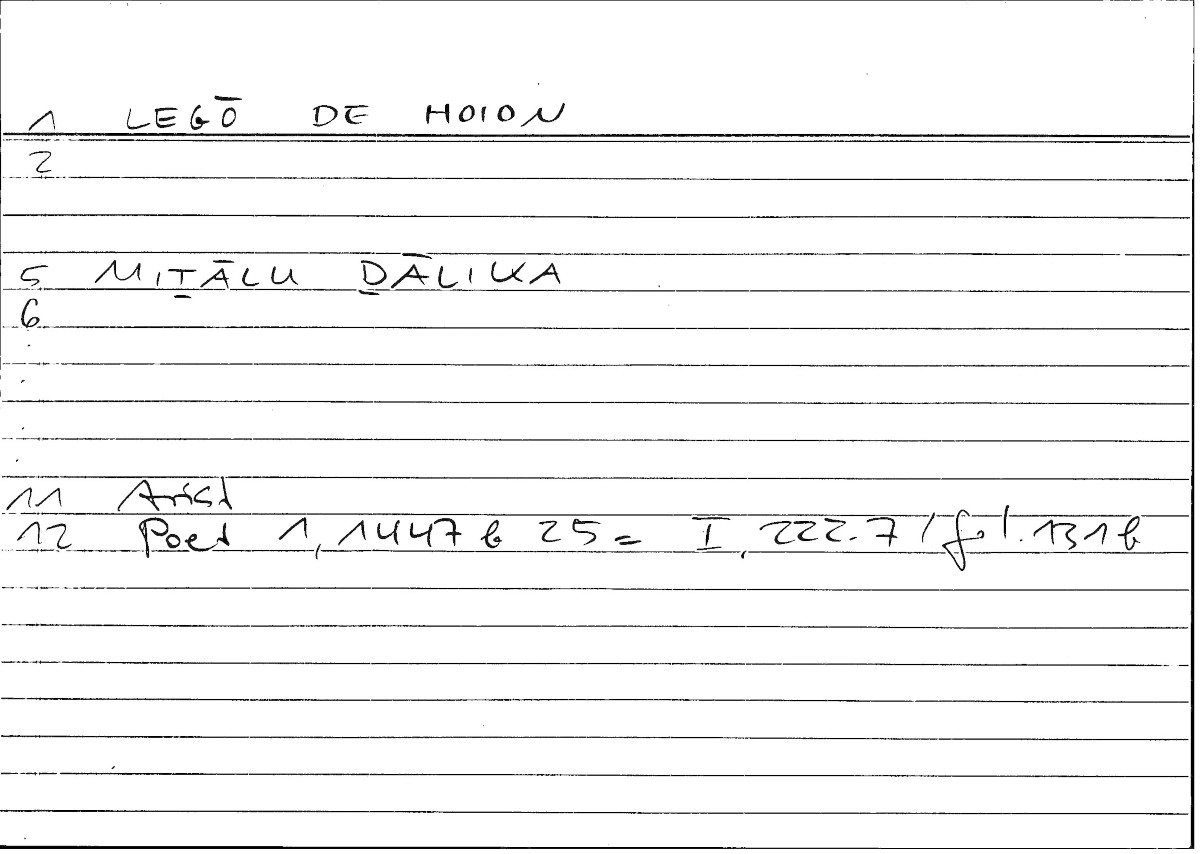 1 LEGŌ DE HOION
2
5 MIṮĀLU ḎĀLIKA
6
.
.
.
.
11 Arist
12 Poet 1, 1447 b 25 = I, 222.7 / fol. 131b